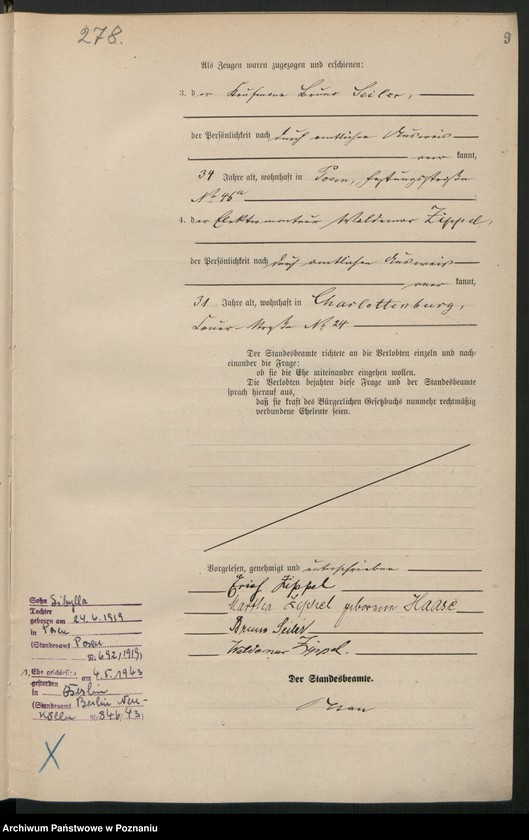 278.
9
Als Zeugen waren zugezogen und erschienen:
3. der Kaufmann Bruno Seiler,
der Persönlichkeit nach durch amtlichen Ausweis
kannt,
34 Jahre alt, wohnhaft in Posen, Festungsstraße
No 46a
4. der Elektromonteur Waldemar Zippel,
der Persönlichkeit nach durch amtlichen Ausweis
kannt,
31 Jahre alt, wohnhaft in Charlottenburg,
No 24
Der Standesbeamte richtete an die Verlobten einzeln und nach-
einander die Frage:
ob sie die Ehe miteinander eingehen wollen.
Die Verlobten bejahten diese Frage und der Standesbeamte
sprach hierauf aus,
daß sie kraft des Bürgerlichen Gesetzbuchs nunmehr rechtmäßig
verbundene Eheleute seien.
Vorgelesen, genehmigt und unterschrieben
Erich Zippel
Martha Zippel geborene Haase
Bruno Seiler
Waldemar Zippel.
Der Standesbeamte.
Sohn Sibylla
Tochter
geboren am 24.6.1919
in Posen
(Standesamt Posen
Nr 692/1919)
1. Ehe geschlossen am 4.5.1943
gestorben
in Berlin
(Standesamt Berlin Neu-
Kölln Nr 846/43)
Archiwum Państwowe w Poznaniu